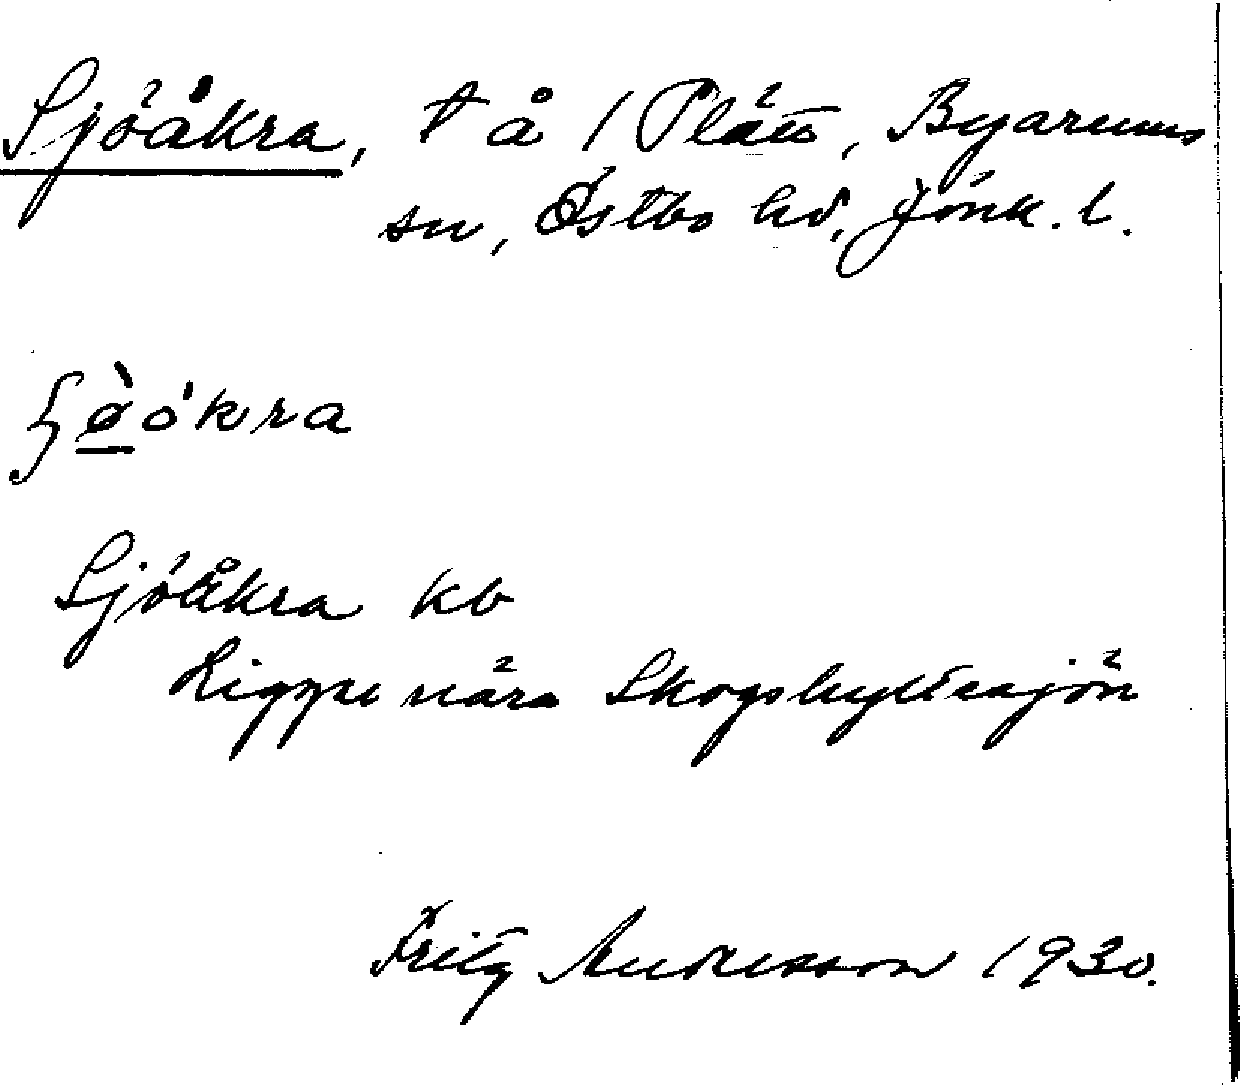 Sjöåkra, t å 1 Plått, Byarums
sn, Östbo hd, Jönk. l.
ʃø̀ókra
Sjöåkra kb
Ligger nära Skogshyltesjön
Fritz Andersson 1930.